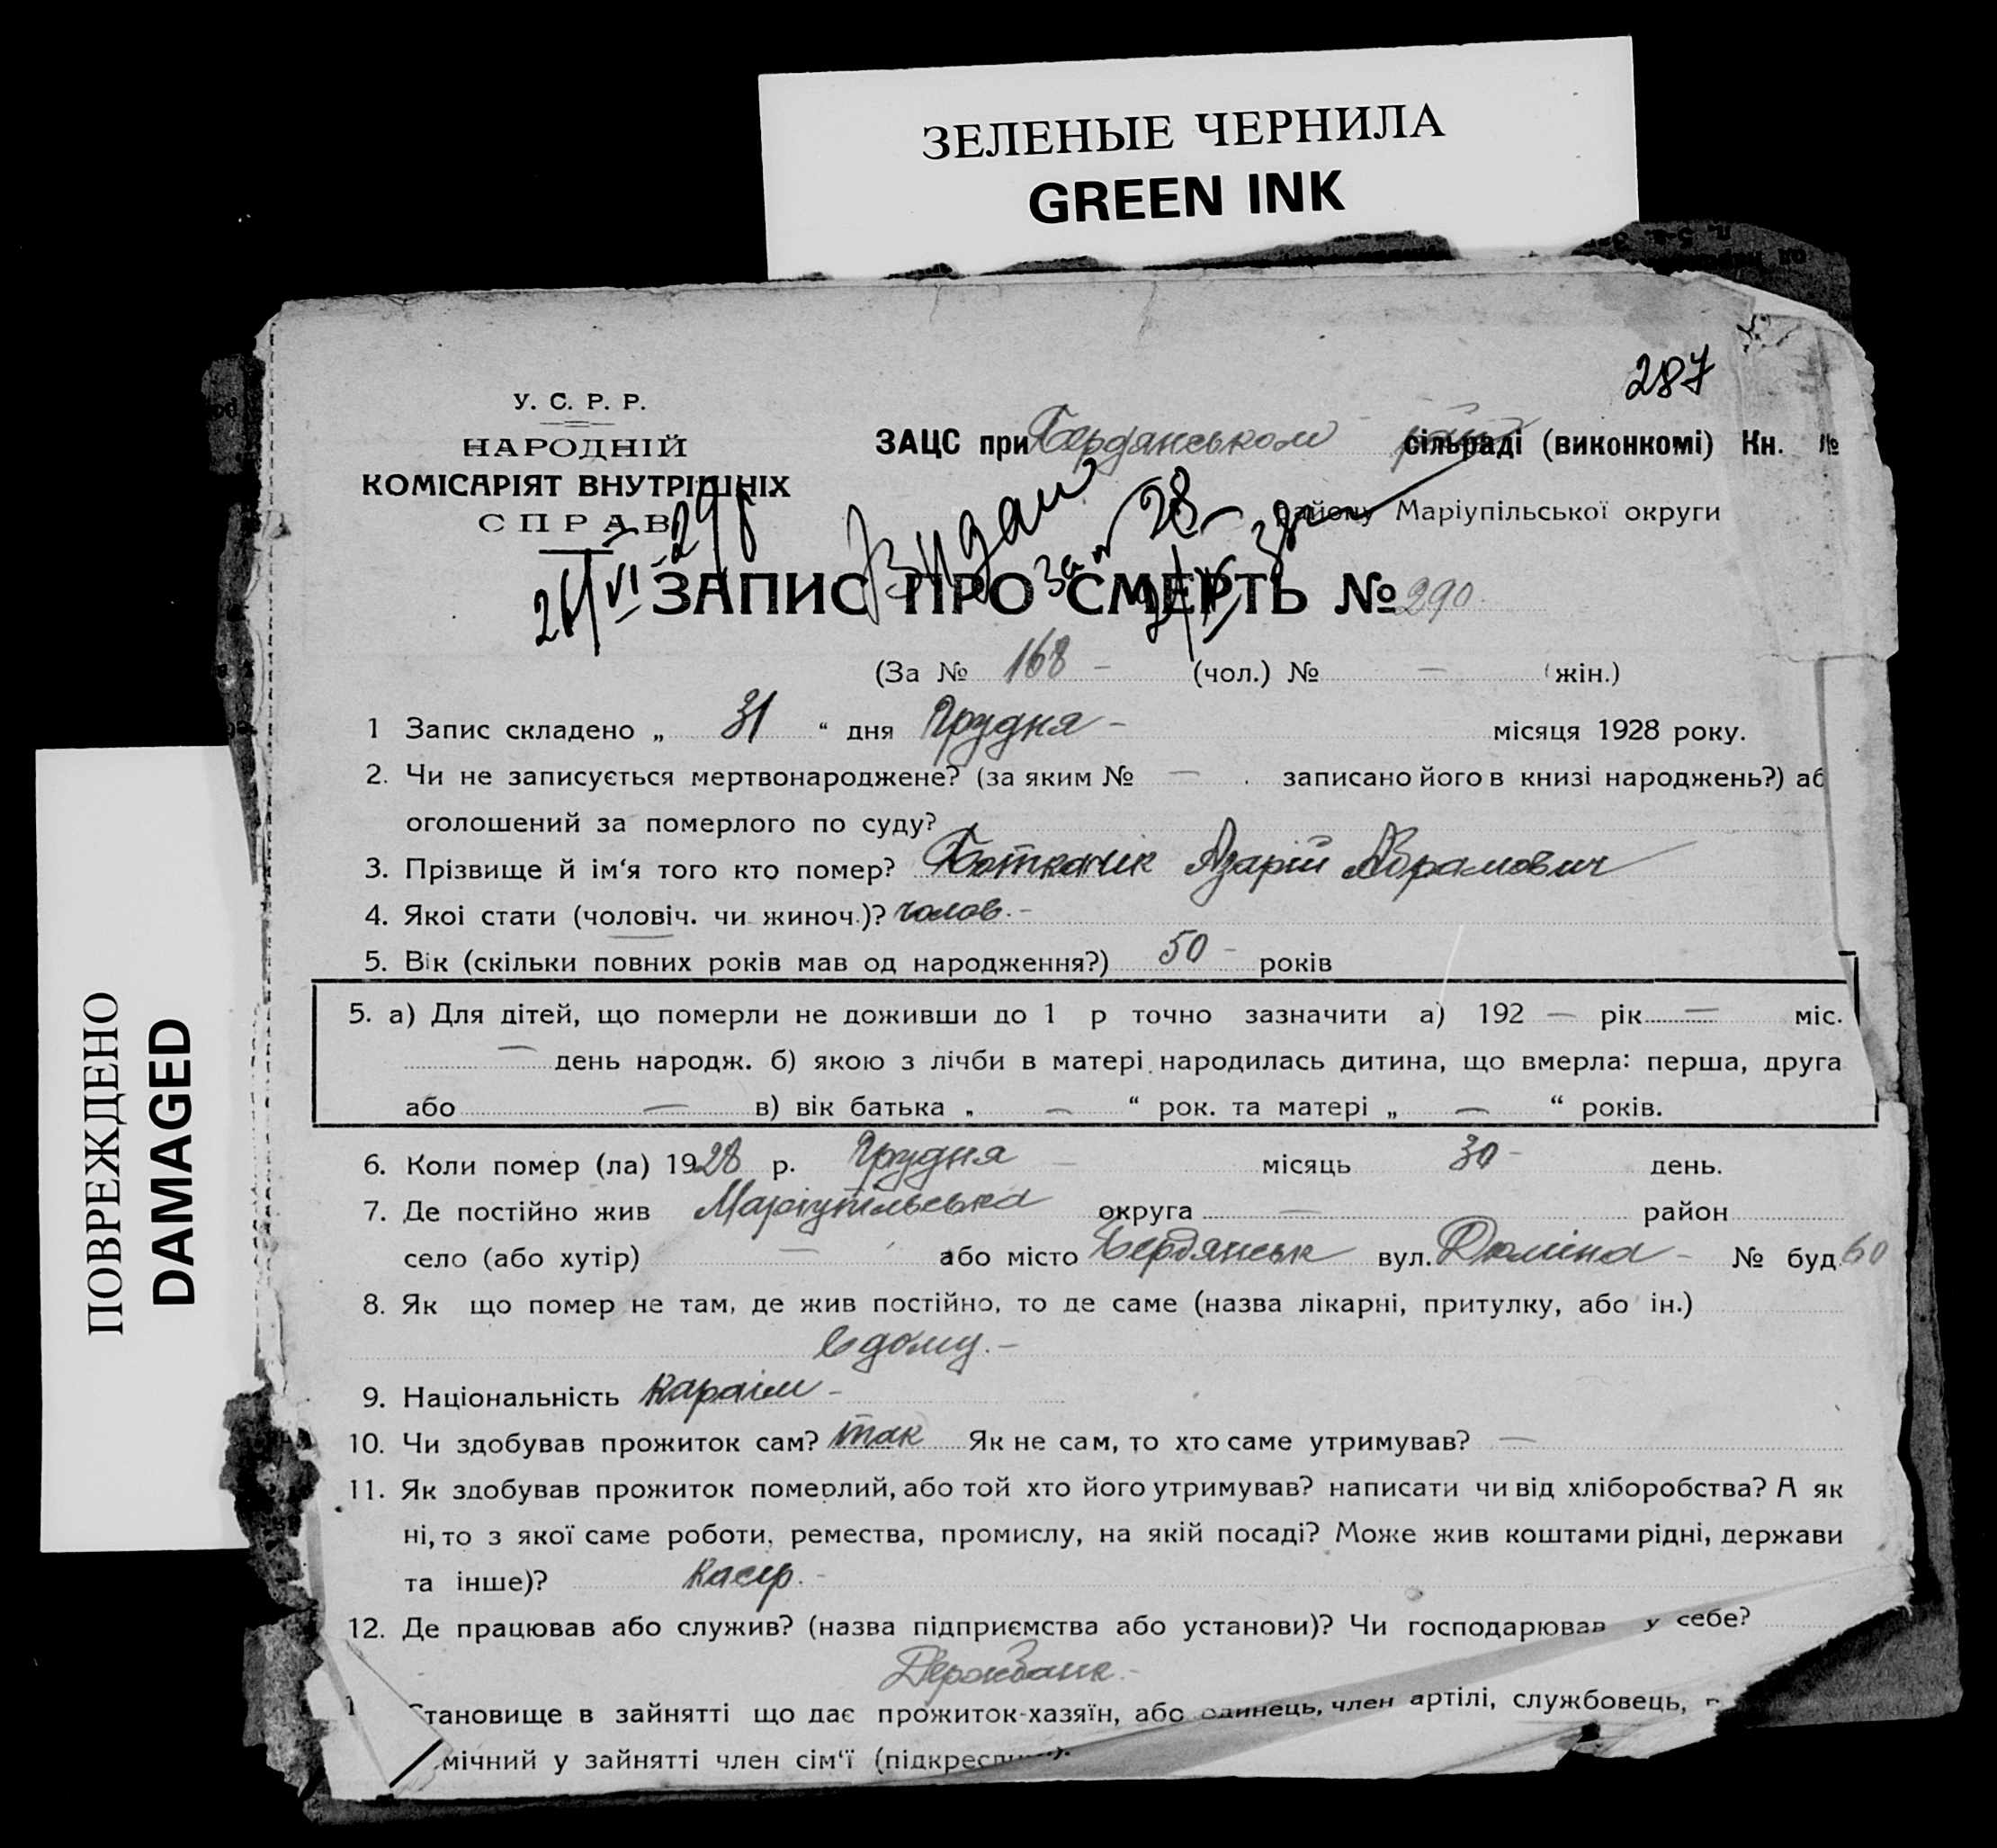 ЗЕЛЕНЫЕ ЧЕРНИЛА
GREEN INK
ПОВРЕЖДЕНО
DAMAGED
287
У. С. Р. Р.
НАРОДНІЙ
КОМІСАРІЯТ ВНУТРІШНІХ
СПРАВ
ЗАЦС при Бердянськом сільраді (виконкомі) Кн. №
району Маріупільської округи
Видан
28
ЗАПИС ПРО СМЕРТЬ № 290.
(За № 168 – (чол.) № — (жін.)
1 Запис складено „ 31 “ дня Грудня – місяця 1928 року.
2. Чи не записується мертвонароджене? (за яким № — записано його в книзі народжень?) аб
оголошений за померлого по суду?
3. Прізвище й ім‘я того кто помер? Боткачик Азарій Абрамович
4. Якоі стати (чоловіч. чи жиноч.)? чолов. –
5. Вік (скільки повних років мав од народження?) 50 – років
5. а) Для дітей, що померли не доживши до 1 р точно зазначити а) 192 — рік — міс.
— день народж. б) якою з лічби в матері народилась дитина, що вмерла: перша, друга
або — в) вік батька „ — “ рок. та матері „ — “ років.
6. Коли помер (ла) 1928 р. Грудня — місяць 30 – день.
7. Де постійно жив Маріупільська округа — район
село (або хутір) — або місто Бердянськ вул. Дюміна – № буд. 60
8. Як що помер не там, де жив постійно, то де саме (назва лікарні, притулку, або ін.)
в дому. –
9. Національність караім –
10. Чи здобував прожиток сам? так Як не сам, то хто саме утримував? —
11. Як здобував прожиток померлий, або той хто його утримував? написати чи від хліборобства? А як
ні, то з якої саме роботи, ремества, промислу, на якій посаді? Може жив коштами рідні, держави
та інше)? касір. –
12. Де працював або служив? (назва підприємства або установи)? Чи господарював у себе?
Держбанк. –
1 Становище в зайнятті що дає прожиток-хазяїн, або одинець, член артілі, службовець,
мічний у зайнятті член сім‘ї